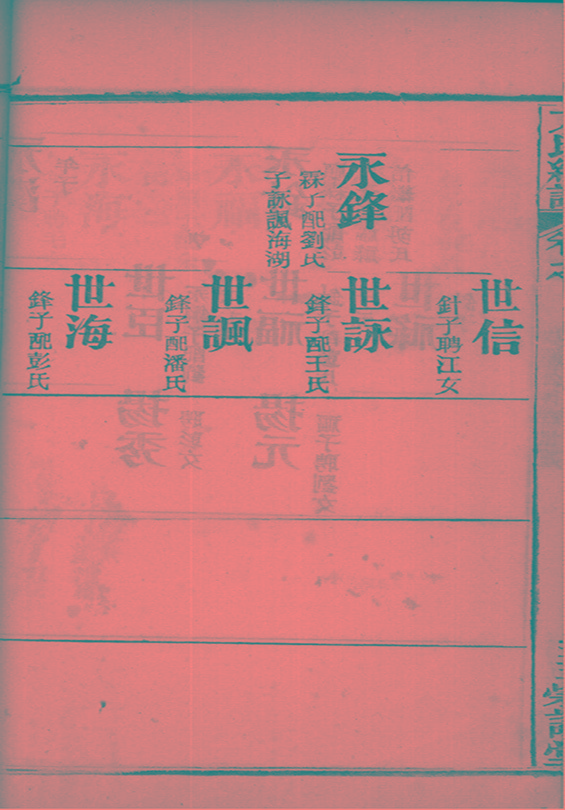 永鋒
霖子配劉氏
子詠諷海湖
世信
針子聘江女
世詠
鋒子配王氏
世諷
鋒子配潘氏
世海
鋒子配彭氏